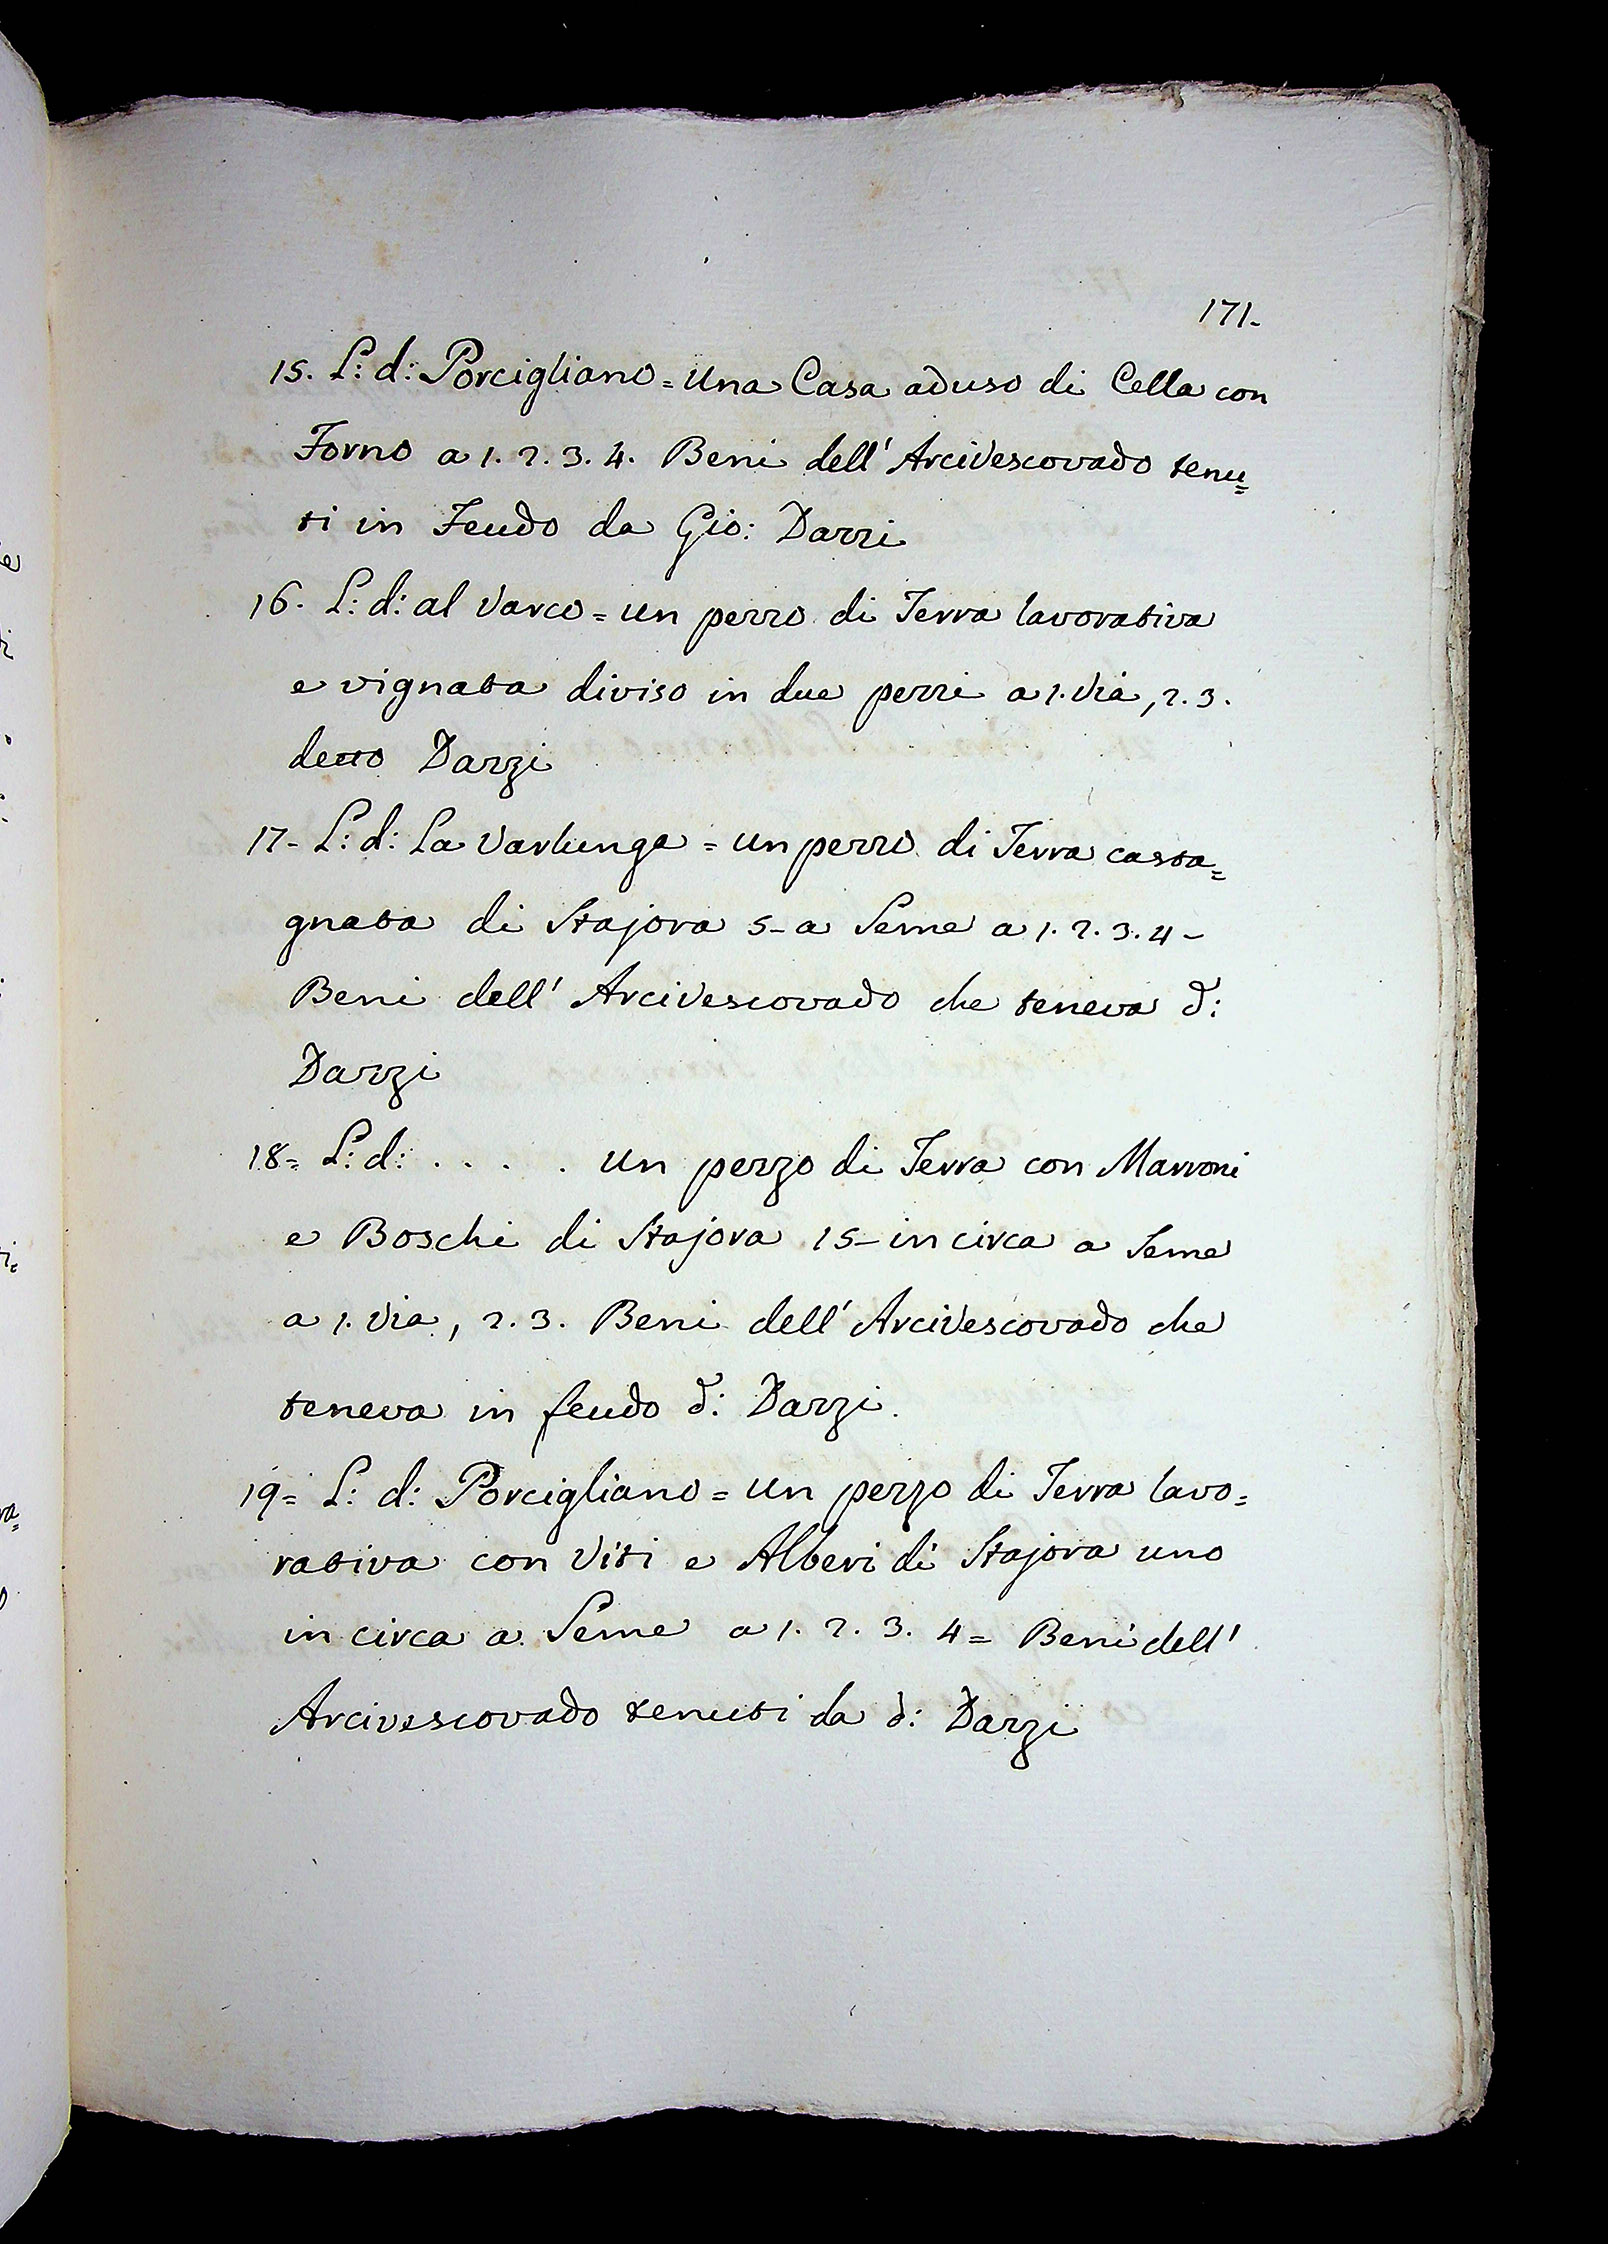 171.
15. L: d: Porcigliano = Una Casa ad uso di Cella con
Forno a 1. 2. 3. 4. Beni dell' Arcivescovado tenu=
ti in Feudo da Gio: Dazzi
16. L: d: al Varco = un pezzo di Terra lavorativa
e vignata diviso in due pezzi a 1. Via, 2. 3.
detto Dazzi
17- L: d: La Varlunga = un pezzo di Terra casta=
gnata di Stajora 5- a Seme a 1. 2. 3. 4-
Beni dell' Arcivescovado che teneva d:
Dazzi
18= L: d: . . . . Un pezzo di Terra con Marroni
e Boschi di Stajora 15- in circa a Seme
a 1. Via, 2. 3. Beni dell' Arcivescovado che
teneva in feudo d: Dazzi.
19= L: d: Porcigliano = Un pezzo di Terra lavo=
rativa con Viti e Alberi di Stajora uno
in circa a Seme a 1. 2. 3. 4= Beni dell'
Arcivescovado tenuti da d: Dazzi